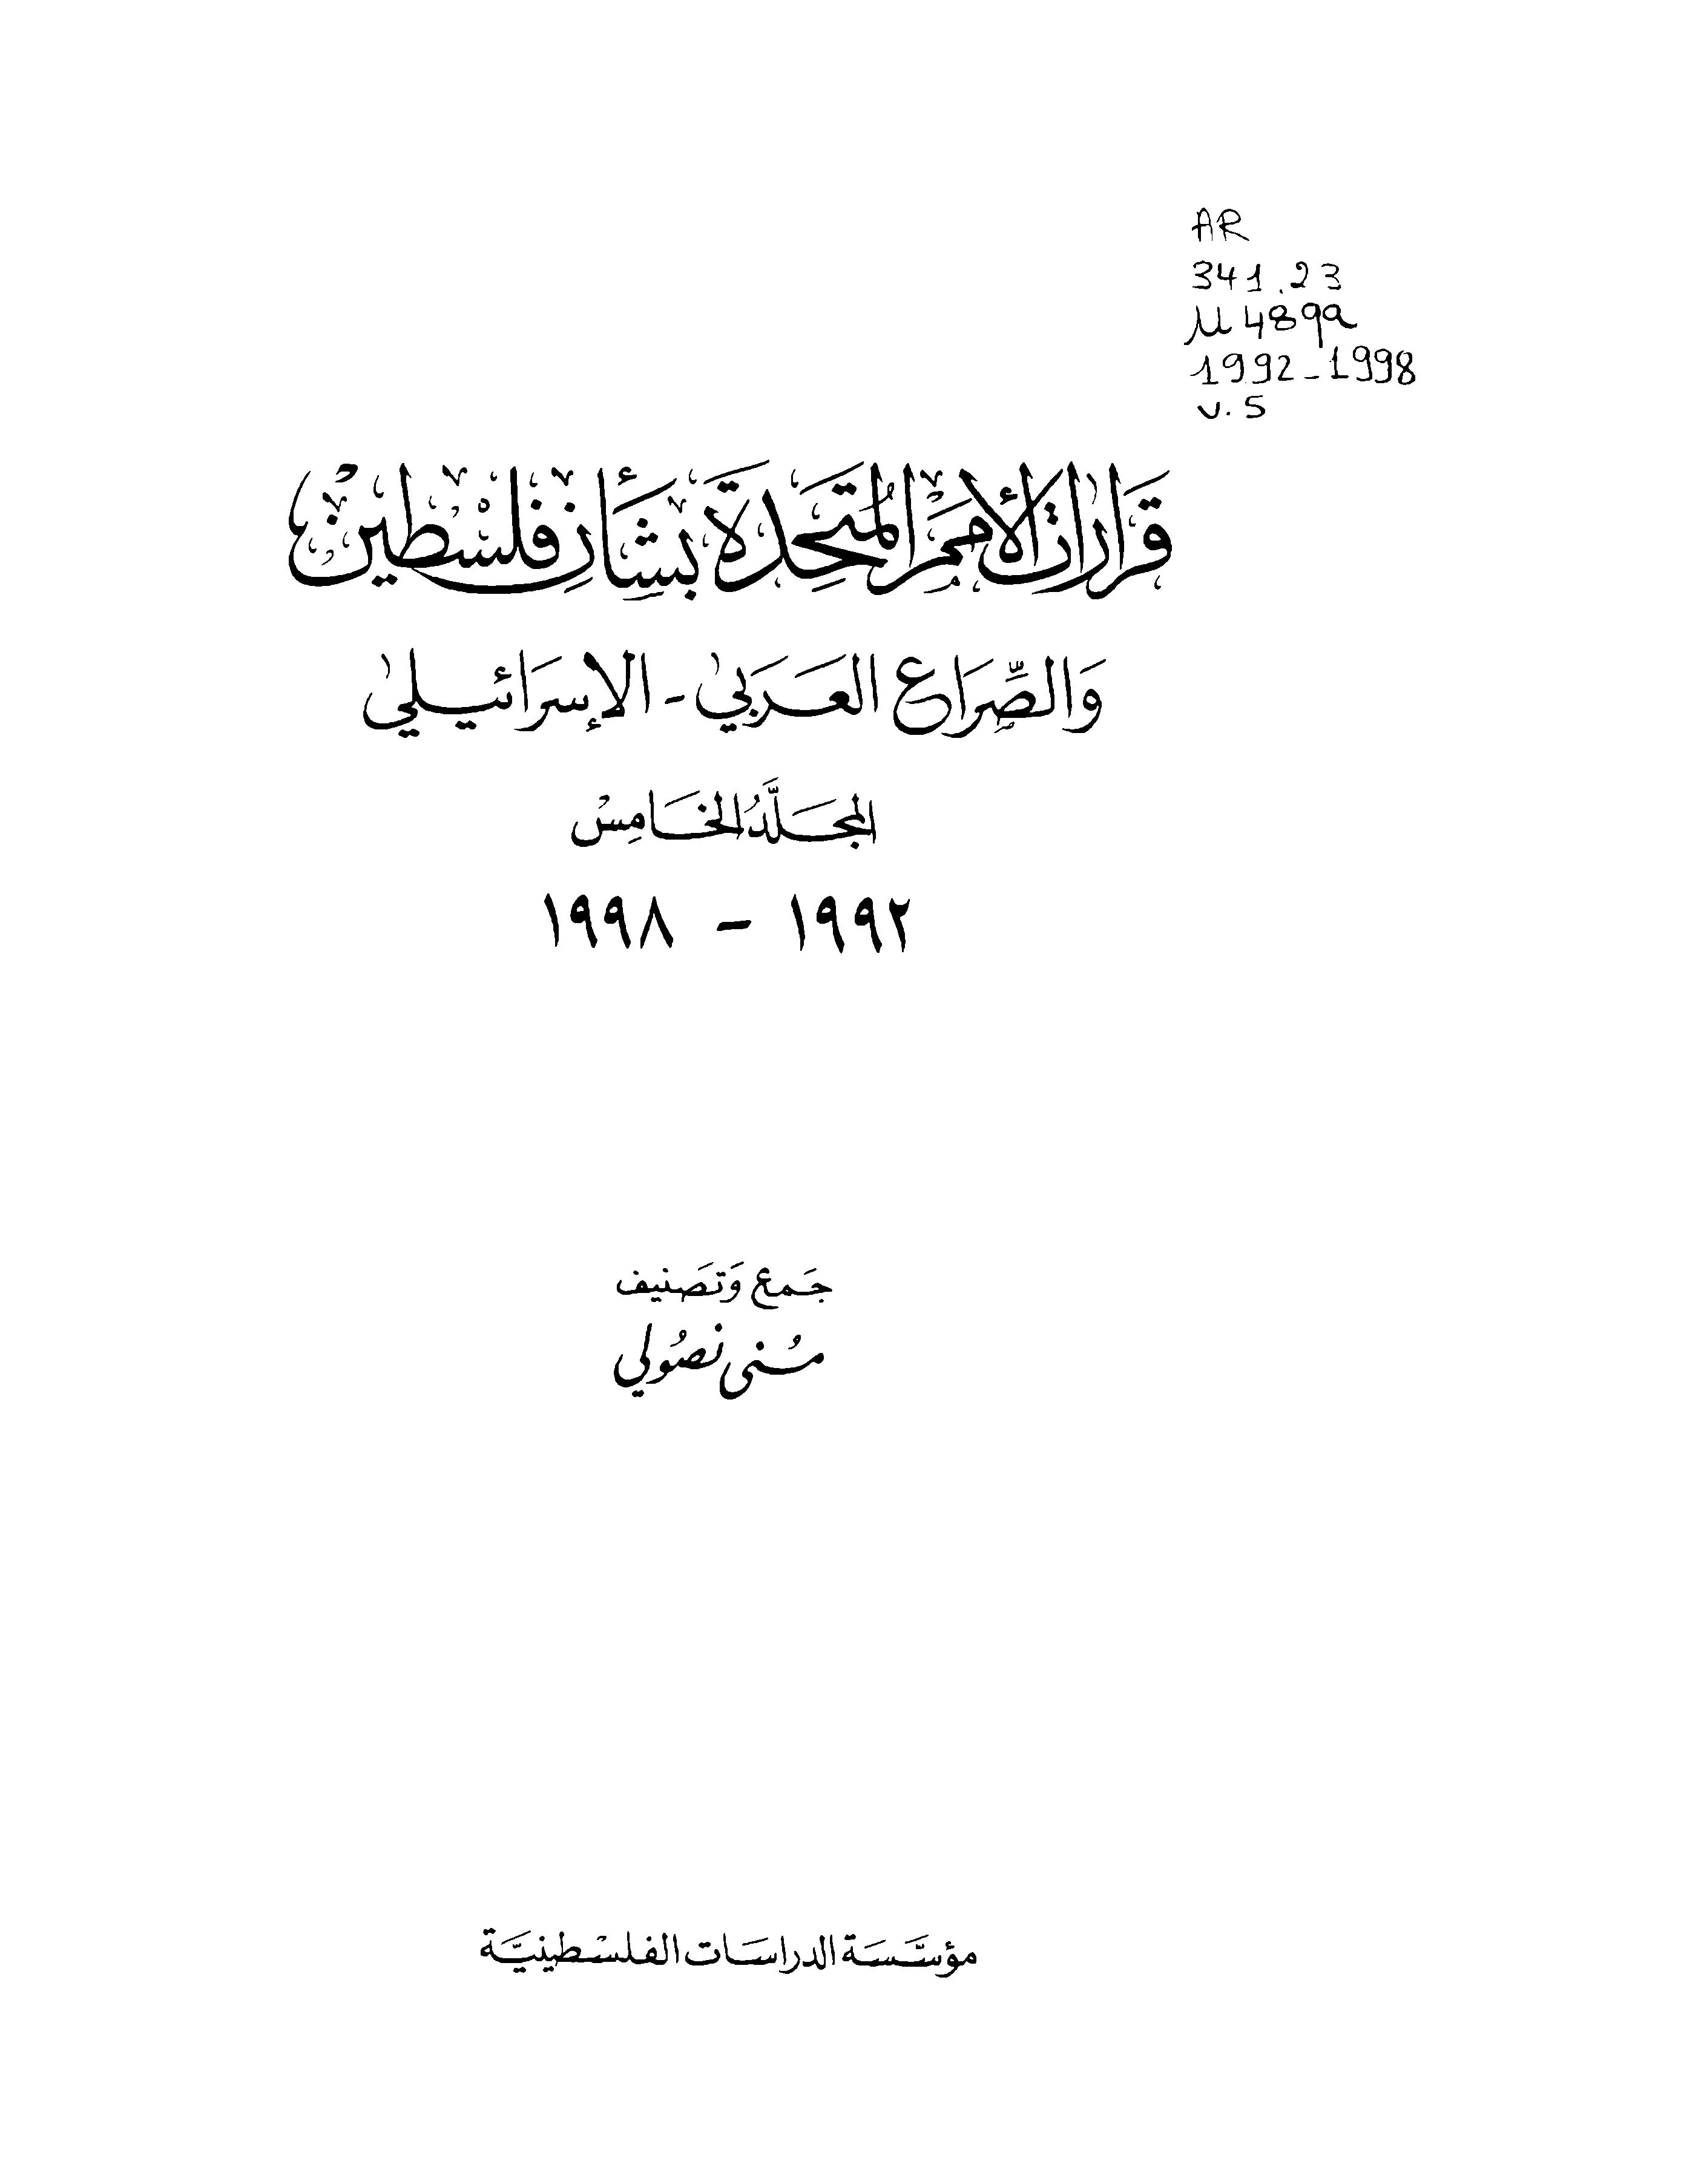 AR
341.23
U489qa
1992-1998
v.5
قَرَارَاتُ الأُمَمِ المُتَّحِدَةِ بِشَأْنِ فِلَسْطِين
وَالصِّرَاع العَرَبي - الإسرَائيلي
المجَلَّدُ الخَامِسْ
١٩٩٢ - ١٩٩٨
جَمع وَتصَنيف
مُنى نصُولي
مؤسَّسَة الدراسَات الفلسْطينيَّة